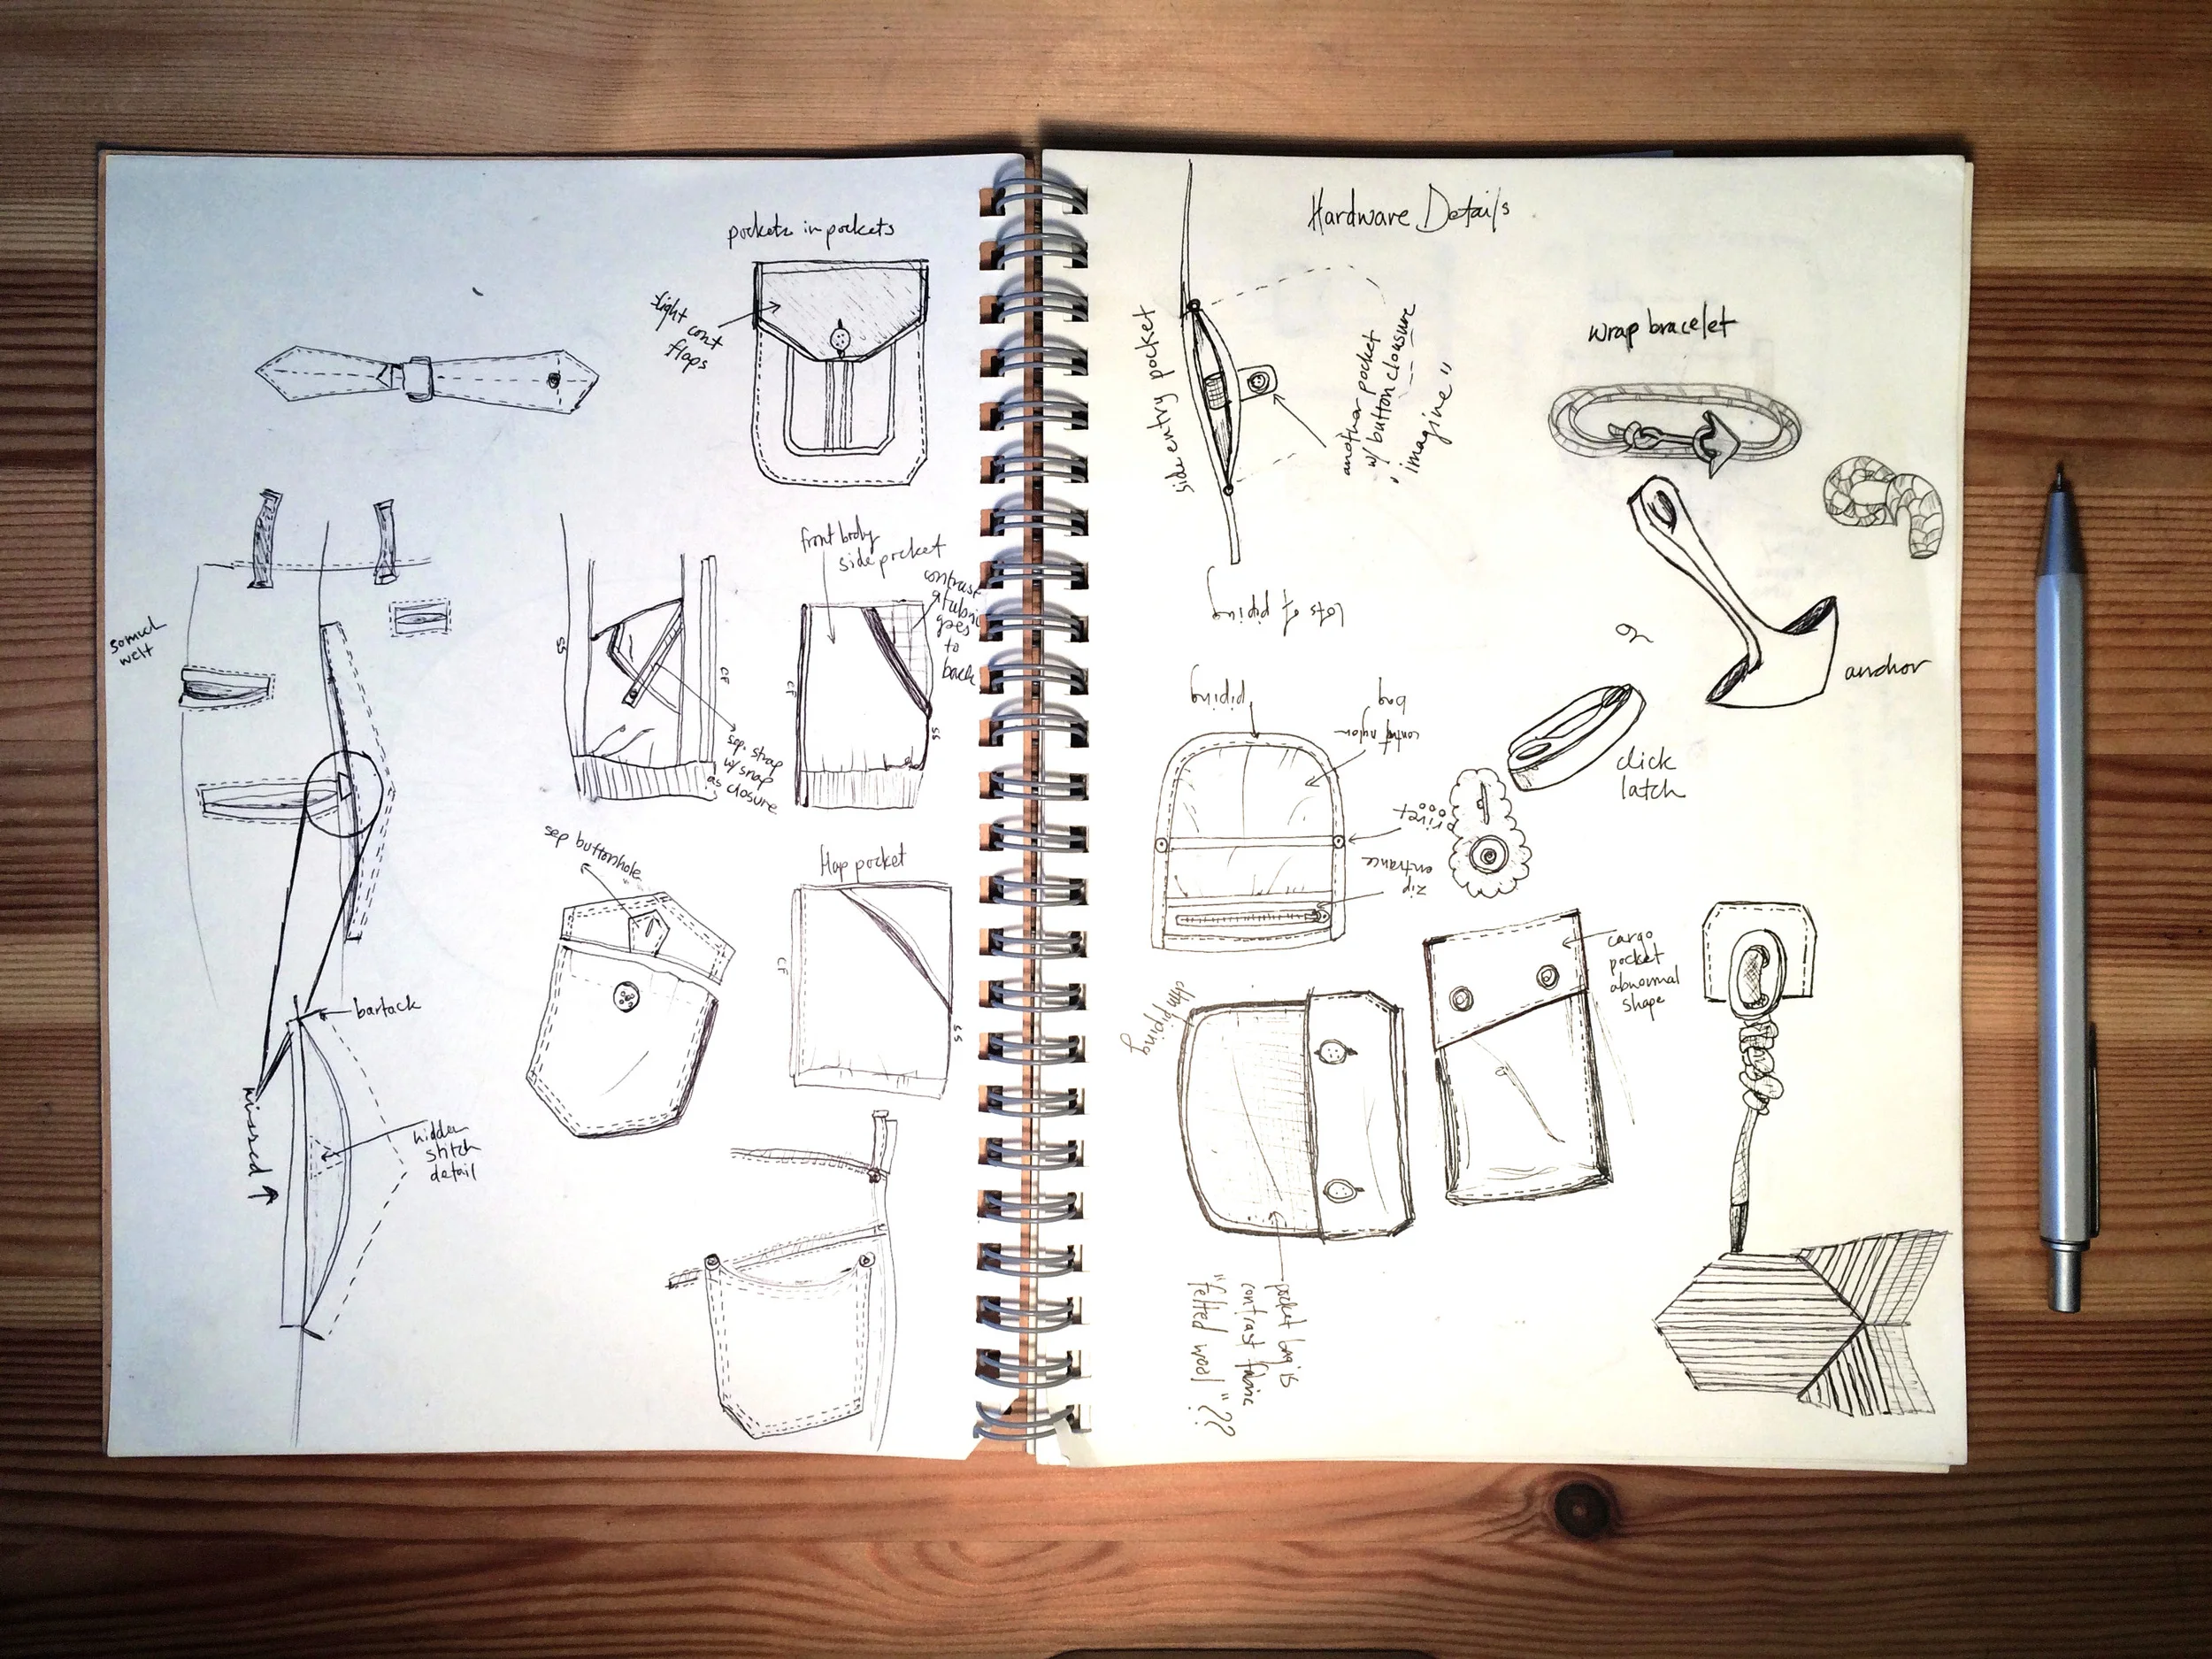 pockets in pockets
slight cont
flaps
somuch
welt
front body
side pocket
contrast
fabric
goes
to
back
SS
CF
CF
SS
sep. strap
w/ snap
as closure
sep buttonhole
flap pocket
CF
SS
bartack
missed
hidden
stitch
detail
Hardware Details
side entry pocket
another pocket
w/ button clousure
"imagine"
wrap bracelet
lots of piping
anchor
piping
bag
nylon
click
latch
rivet
zip
entrance
cargo
pocket
abnormal
shape
piping
pocket bag is
contrast fabric
"felted wool"??